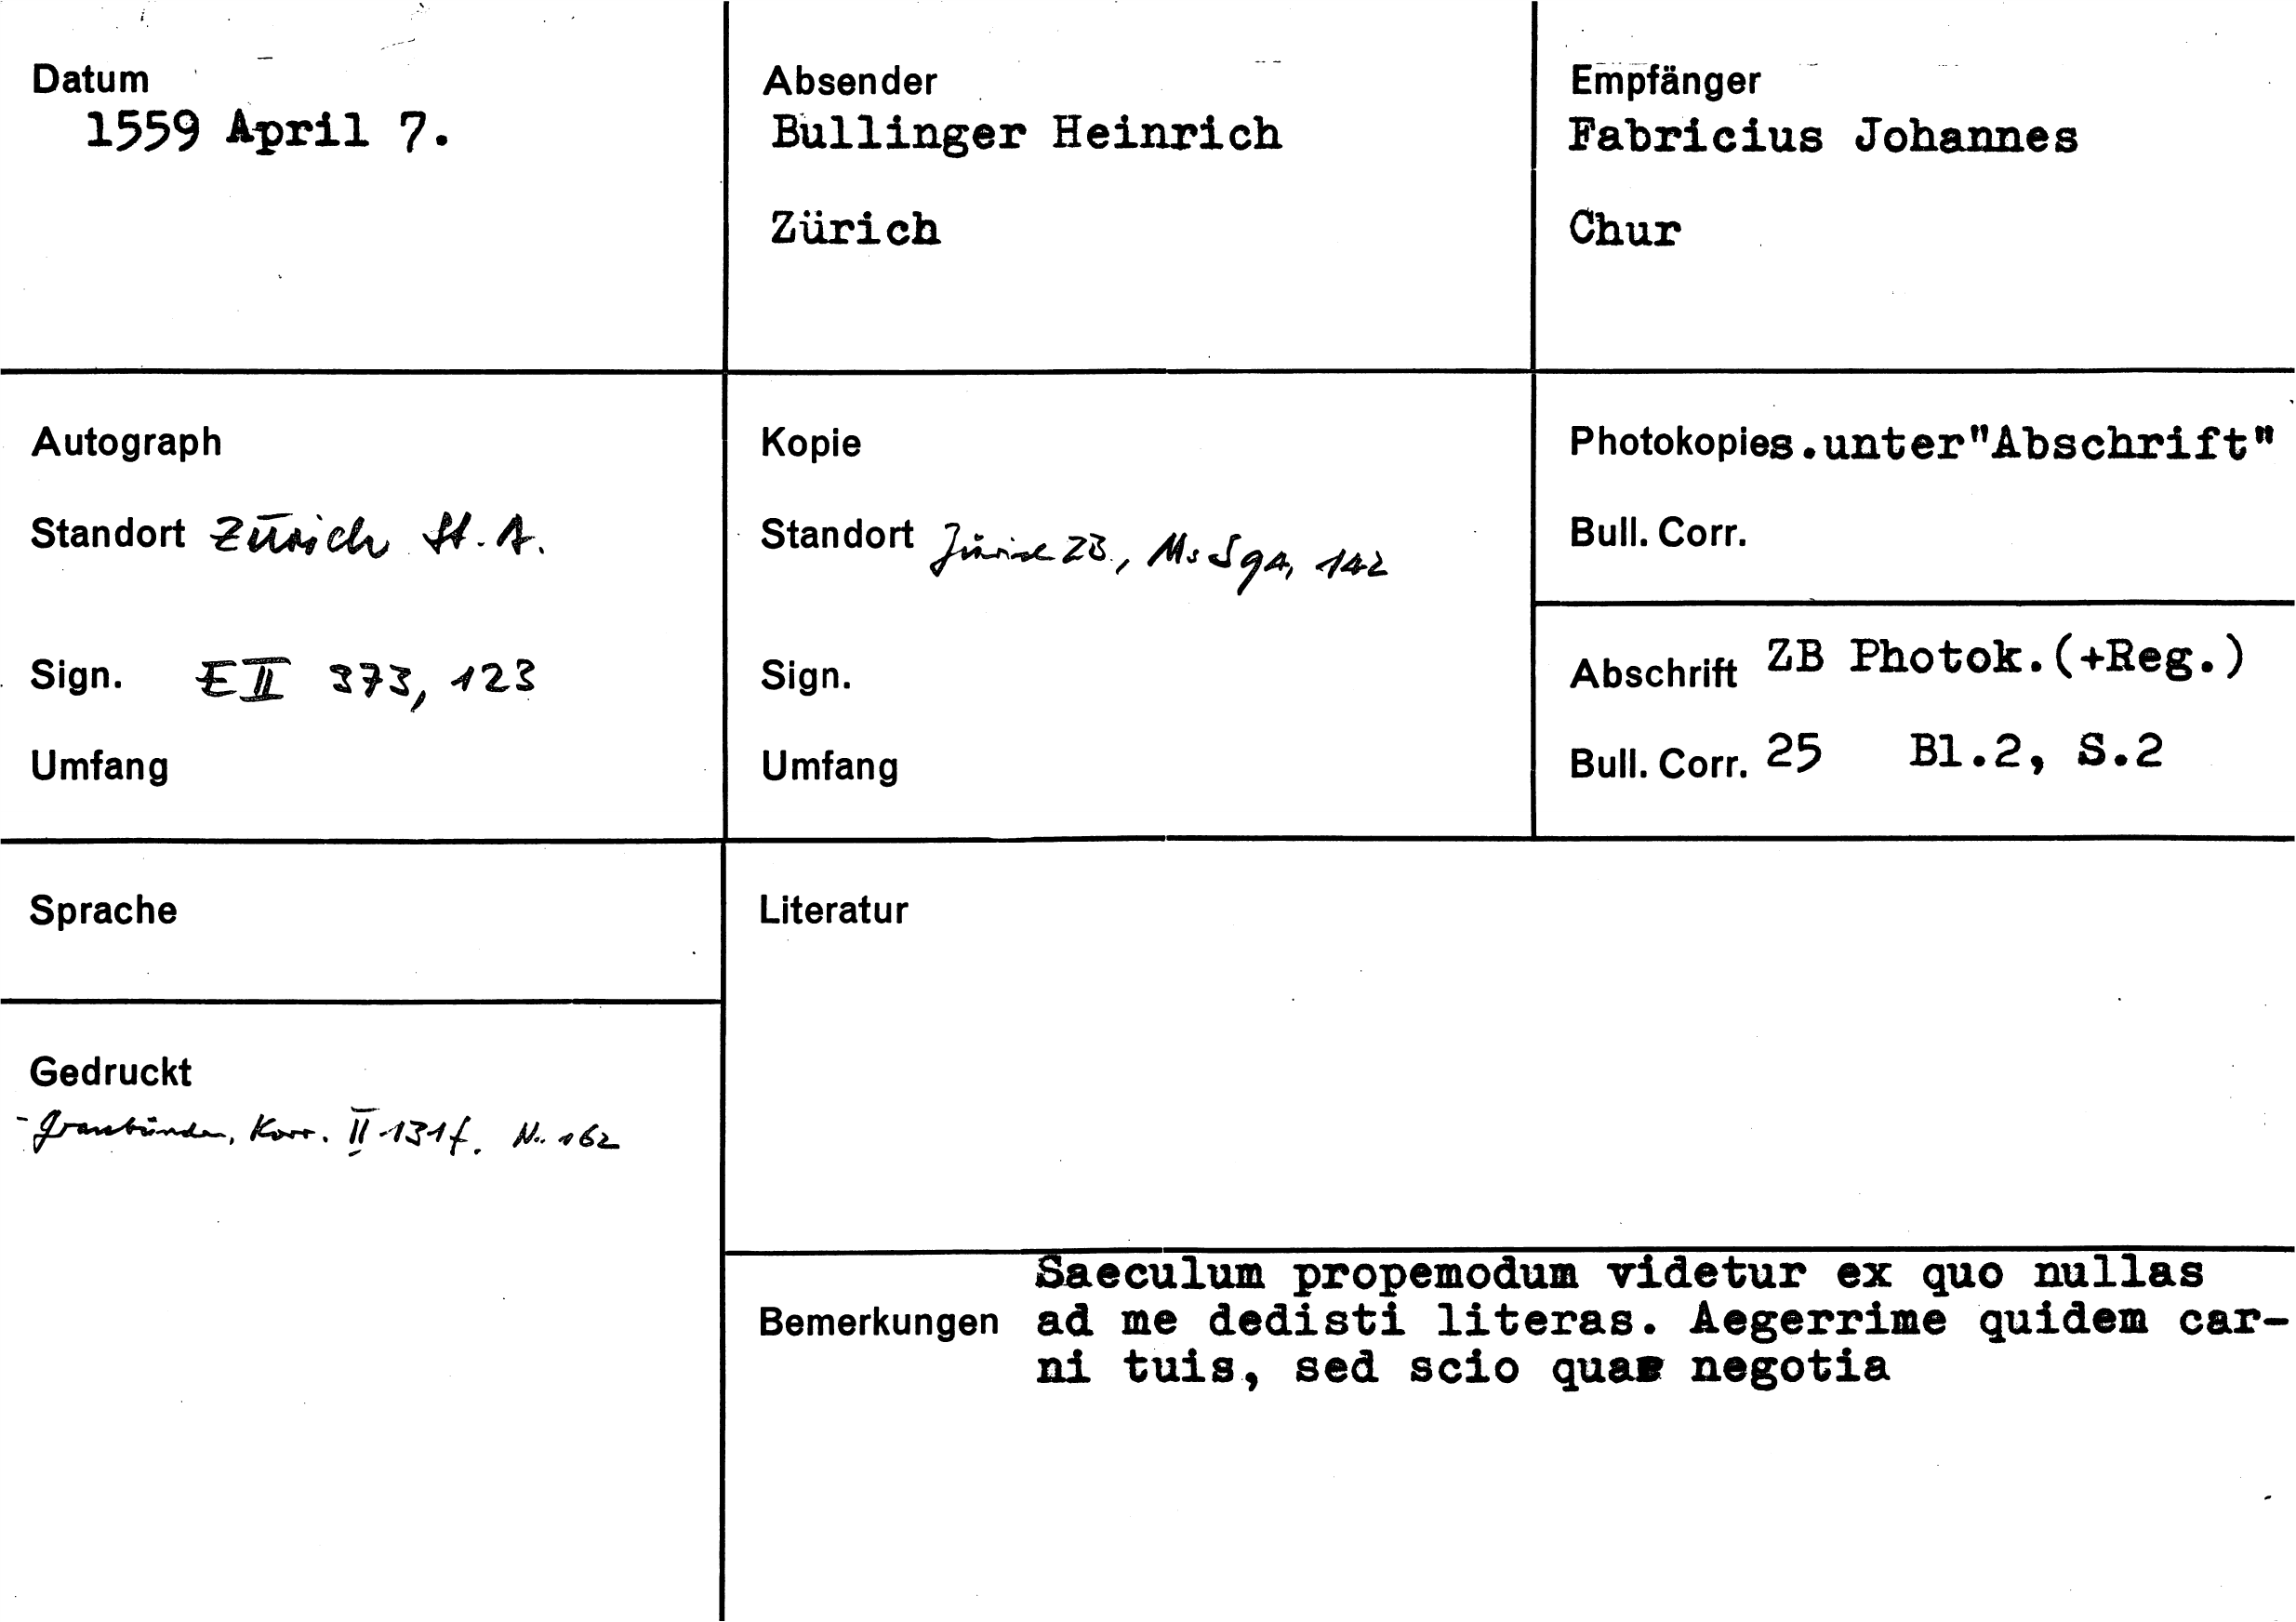 Datum
1559 April 7.
Absender
Bullinger Heinrich
Zürich
Empfänger
Fabricius Johannes
Chur
Autograph
Standort Zürich St. A.
Sign. E II 373, 123
Umfang
Kopie
Standort Zürich ZB, Ms S 94, 142
Sign.
Umfang
Photokopie s.unter"Abschrift"
Bull. Corr.
Abschrift ZB Photok.(+Reg.)
Bull. Corr. 25 Bl.2, S.2
Sprache
Gedruckt
- Graubünden, Korr. II 131f. Nr. 162
Literatur
Bemerkungen
Saeculum propemodum videtur ex quo nullas
ad me dedisti literas. Aegerrime quidem car-
ni tuis, sed scio quae negotia